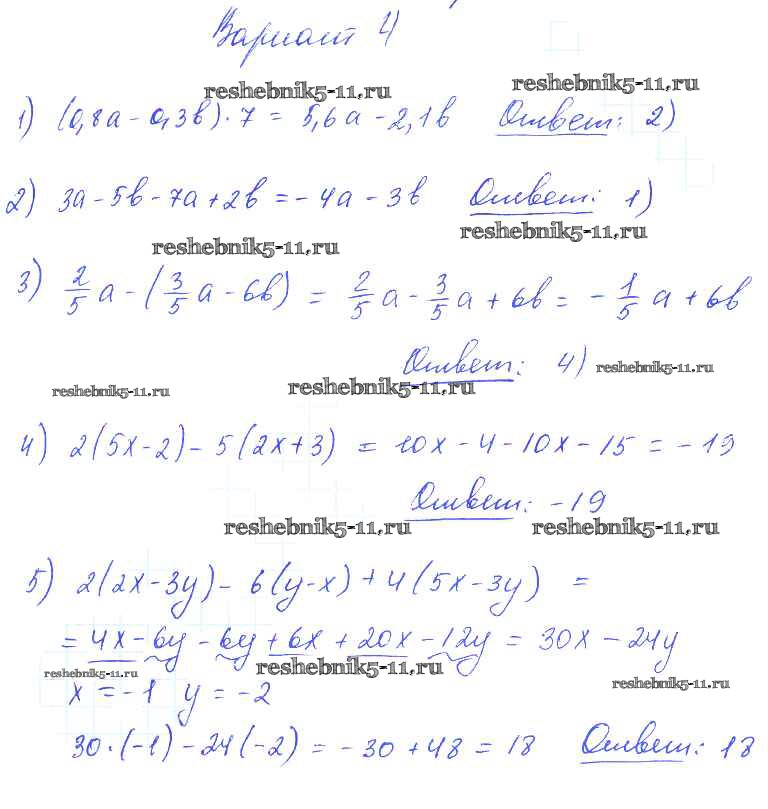 Вариант 4
reshebnik5-11.ru reshebnik5-11.ru
1) (0,8a - 0,3b) · 7 = 5,6a - 2,1b Ответ: 2)
2) 3a - 5b - 7a + 2b = - 4a - 3b Ответ: 1)
reshebnik5-11.ru reshebnik5-11.ru
3) 2/5 a - (3/5 a - 6b) = 2/5 a - 3/5 a + 6b = - 1/5 a + 6b
Ответ: 4) reshebnik5-11.ru
reshebnik5-11.ru reshebnik5-11.ru
4) 2(5x - 2) - 5(2x + 3) = 10x - 4 - 10x - 15 = - 19
Ответ: -19
reshebnik5-11.ru reshebnik5-11.ru
5) 2(2x - 3y) - 6(y - x) + 4(5x - 3y) =
= 4x - 6y - 6y + 6x + 20x - 12y = 30x - 24y
reshebnik5-11.ru reshebnik5-11.ru reshebnik5-11.ru
x = -1 y = -2
30 · (-1) - 24(-2) = - 30 + 48 = 18 Ответ: 18